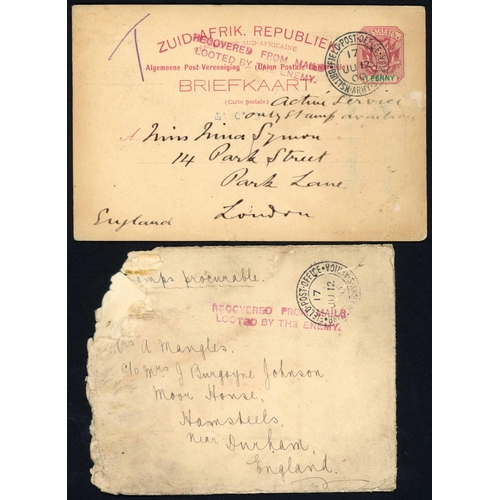 ZUID-AFRIK. REPUBLIEK
SUD-AFRICAINE
RECOVERED FROM MAILS
LOOTED BY THE ENEMY.
Algemeene Post-Vereeniging (Union Postale
BRIEFKAART
(Carte postale)
PENNY
FIELD POST OFFICE
BRITISH ARMY S. AFRICA
17
JU 12
00
Active Service
only stamp available
Miss Nina Symon
14 Park Street
Park Lane
London
England
procurable.
FIELD POST OFFICE
17
JU 12
RECOVERED FROM MAILS
LOOTED BY THE ENEMY.
A Mangles.
c/o Mrs J Burgoyne Johnson
Moor House,
Hamsteels,
near Durham,
England.